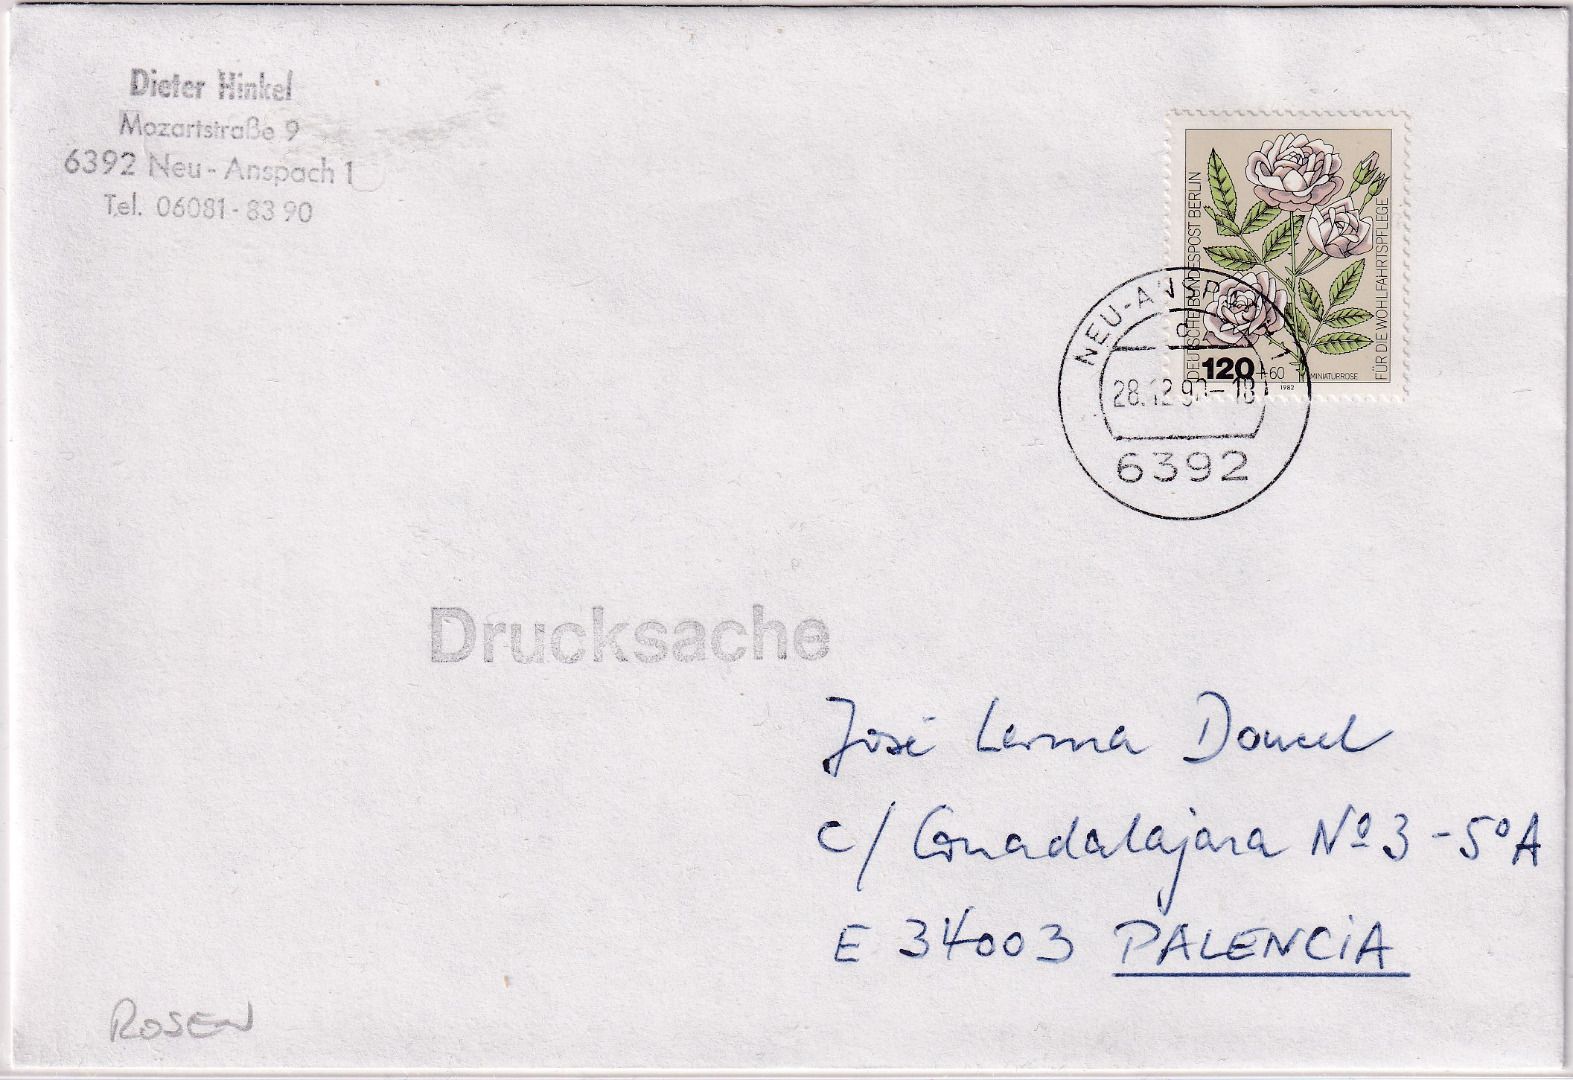 Dieter Hinkel
Mozartstraße 9
6392 Neu-Anspach 1
Tel. 06081-83 90
DEUTSCHE BUNDESPOST BERLIN
FÜR DIE WOHLFAHRTSPFLEGE
120+60
MINIATURROSE
1982
NEU-ANSPACH 1
28.12.90-18
6392
Drucksache
José Lerma Doncel
c/ Guadalajara Nº 3 - 5º A
E 34003 PALENCIA
ROSEN